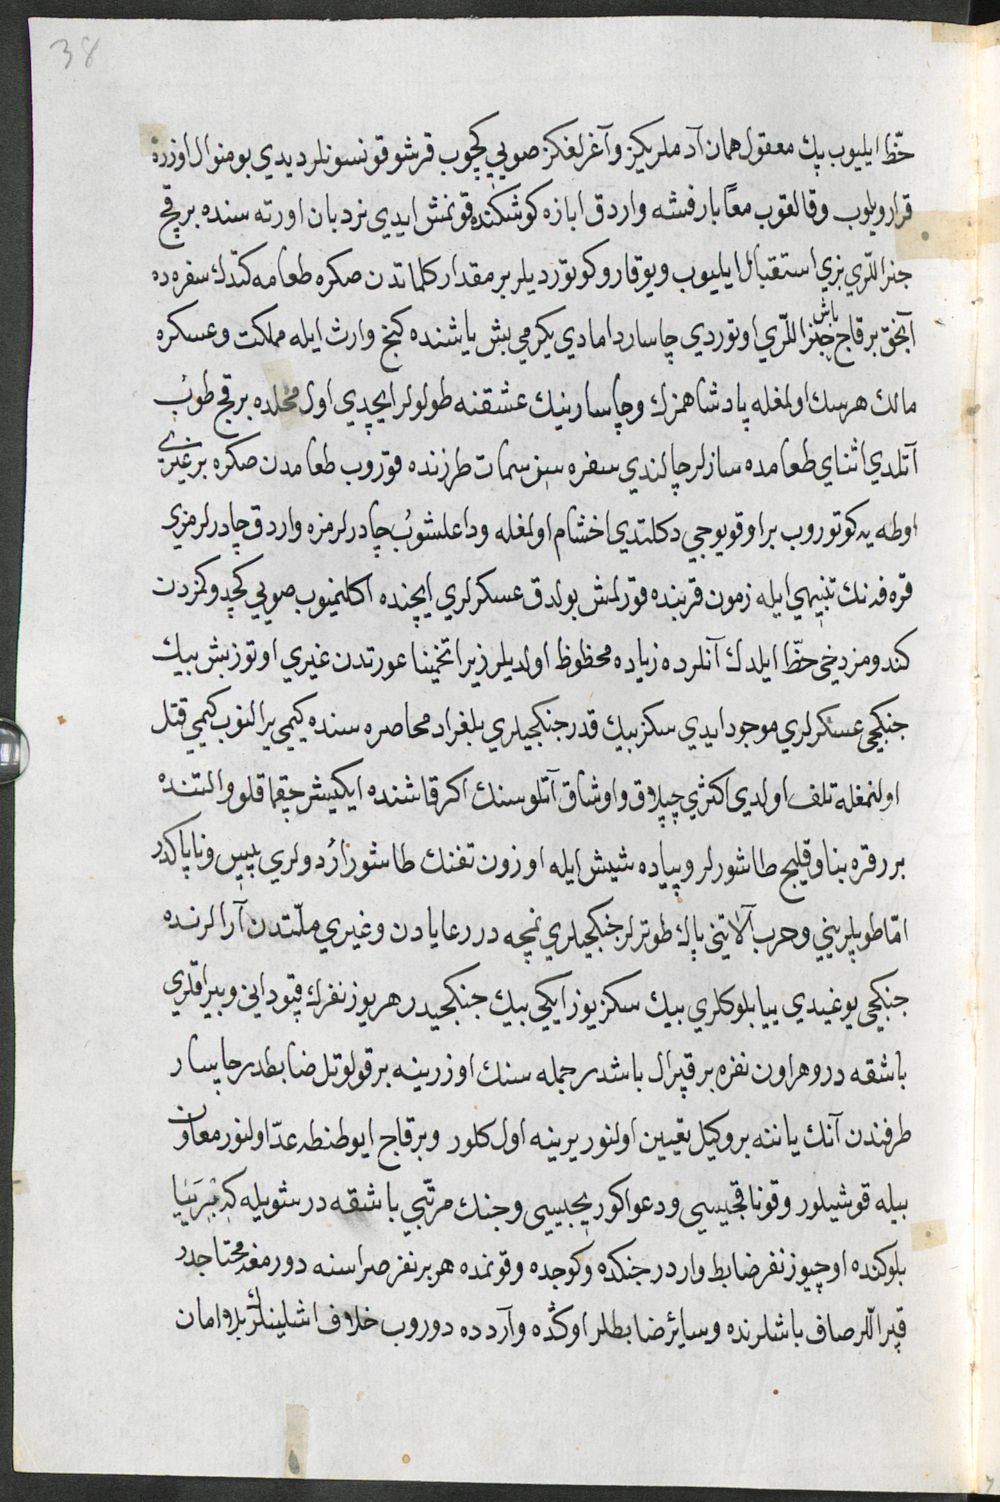 38
حظّ ايليوب پك معقول همان آدملريكز و آغرلغكز صويى كچوب قرشو قونسونلر ديدي بو منوال اوزره
قرار ويلوب وقالقوب معًا بارفشه واردق ابازه كوشكنده قونمش ايدي نردبان اورته سنده برقچ
جنراللري بزي استقبال ايليوب ويوقارو كوتورديلر بر مقدار كلماتدن صكره طعامه كتدك سفره ده
آنجق برقاج باش جنراللّري اوتوردي چاسار دامادي يكرمي بش ياشنده كنج وارث ايله مملكت وعسكره
مالك هرسك اولمغله پادشاهمزك وچاسارينك عشقنه طولولر ايچدي اول محلده برقچ طوپ
آتلدي اثناي طعامده سازلر چالندي سفره سى سمات طرزنده قوروب طعامدن صكره بر غيري
اوطه يه كوتوروب براوقويوجي دكلتدي اخشام اولمغله وداعلشوب چادرلرمزه واردق چادرلرمزي
قره فه نك تنبيهي ايله زمون قربنده قورلمش بولدق عسكرلري ايچنده اكلنميوب صويي كچدوكمزدن
كندومز دخى حظّ ايلدك آنلرده زياده محظوظ اولديلر زيرا تخمينا عورتدن غيري اوتوزبش بيك
جنكچي عسكرلري موجود ايدي سكز بيك قدر جنكچيلري بلغراد محاصره سنده كيمي يرالنوب كيمي قتل
اولنمغله تلف اولدي اكثري چپلاق واوشاق آتلوسنك اكر قاشنده ايكيشر چقماقلو والتنده
برر قره بنا وقليج طاشورلر وپياده شيش ايله اوزون تفنك طاشور اُردولري پيس وناپاكدر
امّا طوپلريني وحرب آلاتينى پاك طوترلر جنكچيلري نمچه در رعايادن وغيري ملّتدن آرالرنده
جنكچى يوغيدي بيا بلوكلري بيك سكزيوز ايكى بيك جنكچيدر هر يوز نفرك قپودانى وبيراقلري
باشقه در وهر اون نفره بر قپرال باشدر جمله سنك اوزرينه بر قولونل ضابطدر چاسار
طرفندن آنك ياننه بر وكيل تعيين اولنور يرينه اول كلور وبرقاج ايو طنطه عدّ اولنور معاون
بيله قوشيلور وقوناقچيسي ودعوا كوريجيسي وجنك مرتّبي باشقه در شويله كه بر بيا
بلوكنده اوچيوز نفر ضابط واردر جنكده وكوجده وقونمده هر بر نفر صراسنه دورمغه محتاجدر
قپراللر صاف باشلرنده وسائر ضابطلر اوكنده وآردده دوروب خلاف اشلينلره بلا امان